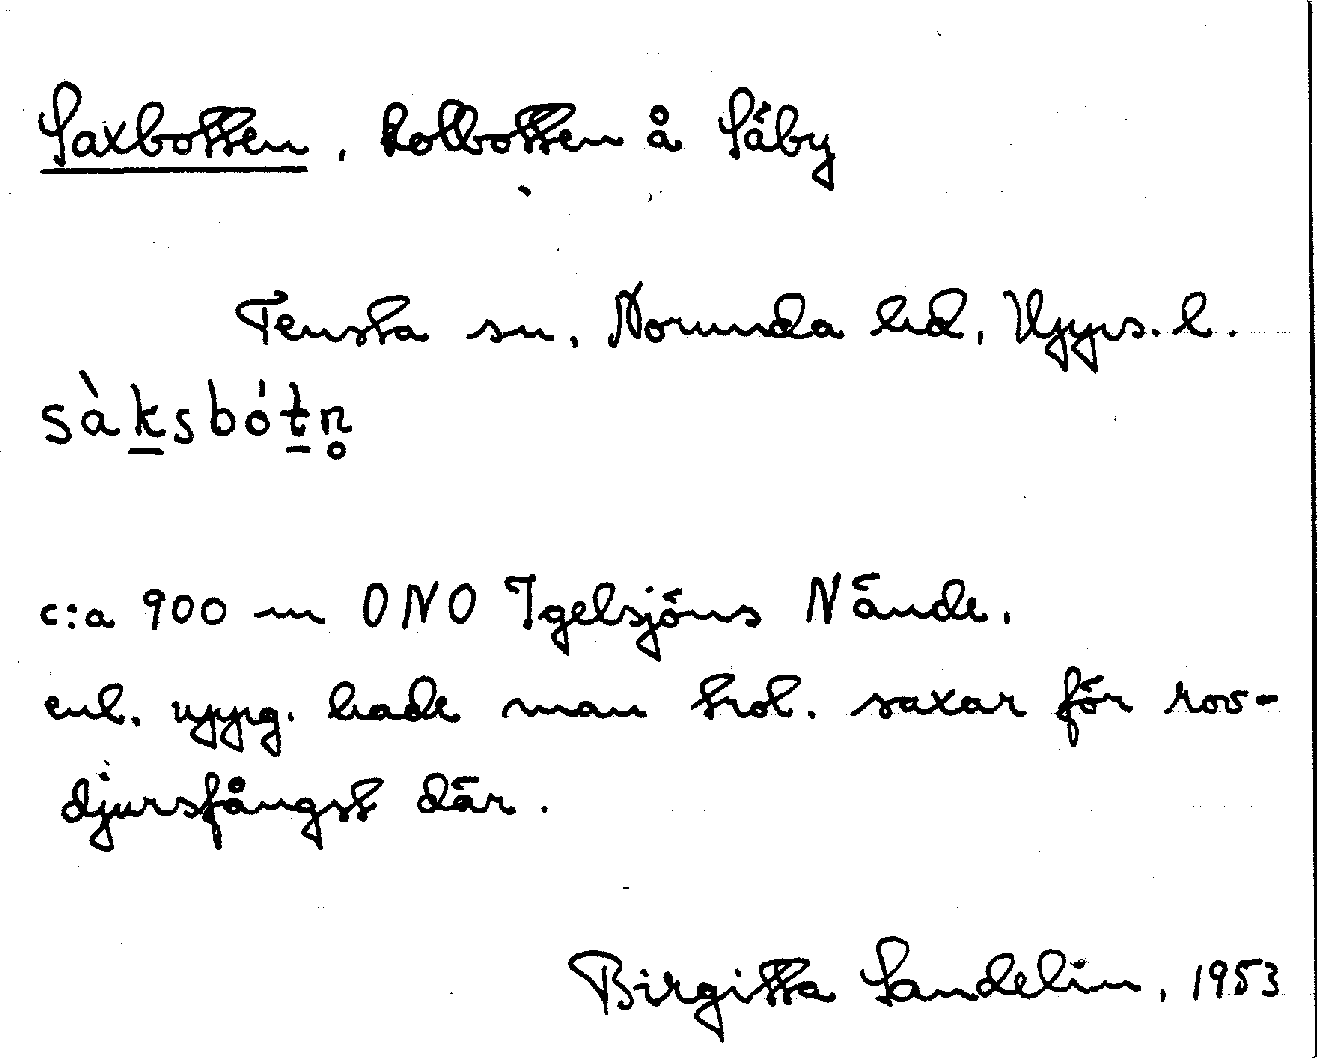 Saxbotten, kolbotten å Säby
Tensta sn, Norunda hd, Upps. l.
sàk̠sbót̠n̥
c:a 900 m ONO Igelsjöns N ände.
enl. uppg. hade man trol. saxar för rov-
djursfångst där.
Birgitta Sandelin, 1953